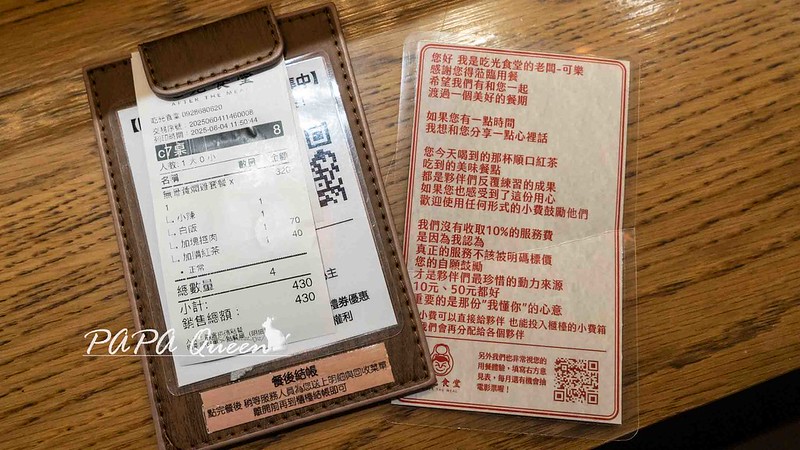 食堂
AFTER THE MEAL
吃光食堂 0928680620
交易序號: 2025060411460008
列印時間: 2025-06-04 11:50:44
c7桌 8
人數: 1 大 0 小
名稱 數量 金額
320
1
- 小辣 1
- 白飯 1 70
- 加塊控肉 1 40
- 加購紅茶
• 正常
總數量 4 430
小計: 430
銷售總額:
禮券優惠
權利
餐後結帳
點完餐後 稍等服務人員為您送上明細與您收菜單
離開前再到櫃檯結帳即可
您好 我是吃光食堂的老闆-可樂
感謝您得蒞臨用餐
希望我們有和您一起
渡過一個美好的餐期
如果您有一點時間
我想和您分享一點心裡話
您今天喝到的那杯順口紅茶
吃到的美味餐點
都是夥伴們反覆練習的成果
如果您也感受到了這份用心
歡迎使用任何形式的小費鼓勵他們
我們沒有收取10%的服務費
是因為我認為
真正的服務不該被明碼標價
您的自願鼓勵
才是夥伴們最珍惜的動力來源
10元、50元都好
重要的是那份"我懂你"的心意
小費可以直接給夥伴 也能投入櫃檯的小費箱
我們會再分配給各個夥伴
食堂
THE MEAL
另外我們也非常視您的
用餐體驗,填寫右方意
見表,每月還有機會抽
電影票喔!
PAPA Queen